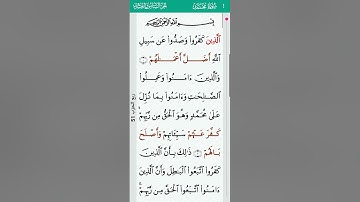 سُورَةُ مُحَمَّدٍ
بِسْمِ ٱللَّهِ ٱلرَّحْمَٰنِ ٱلرَّحِيمِ
ٱلَّذِينَ كَفَرُوا۟ وَصَدُّوا۟ عَن سَبِيلِ
ٱللَّهِ أَضَلَّ أَعْمَٰلَهُمْ ١
وَٱلَّذِينَ ءَامَنُوا۟ وَعَمِلُوا۟
ٱلصَّٰلِحَٰتِ وَءَامَنُوا۟ بِمَا نُزِّلَ
عَلَىٰ مُحَمَّدٍ وَهُوَ ٱلْحَقُّ مِن رَّبِّهِمْ
كَفَّرَ عَنْهُمْ سَيِّـَٔاتِهِمْ وَأَصْلَحَ
بَالَهُمْ ٢ ذَٰلِكَ بِأَنَّ ٱلَّذِينَ
كَفَرُوا۟ ٱتَّبَعُوا۟ ٱلْبَٰطِلَ وَأَنَّ ٱلَّذِينَ
ءَامَنُوا۟ ٱتَّبَعُوا۟ ٱلْحَقَّ مِن رَّبِّهِمْ